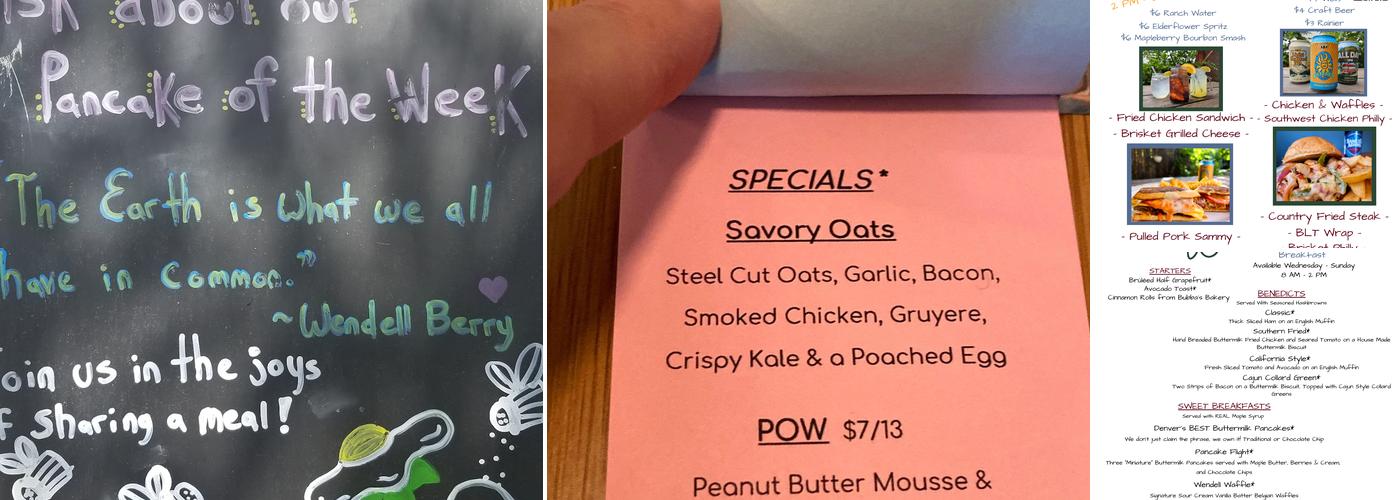 about our
Pancake of the Week
The Earth is what we all
have in common."
~Wendell Berry
us in the joys
sharing a meal!
SPECIALS*
Savory Oats
Steel Cut Oats, Garlic, Bacon,
Smoked Chicken, Gruyere,
Crispy Kale & a Poached Egg
POW $7/13
Peanut Butter Mousse &
2 PM -
$6 Ranch Water
$6 Elderflower Spritz
$6 Mapleberry Bourbon Smash
$4 Craft Beer
$3 Rainier
- Fried Chicken Sandwich -
- Brisket Grilled Cheese -
- Pulled Pork Sammy -
- Chicken & Waffles -
- Southwest Chicken Philly -
- Country Fried Steak -
- BLT Wrap -
STARTERS
Brûléed Half Grapefruit*
Avocado Toast*
Cinnamon Rolls from Bubba's Bakery
Breakfast
Available Wednesday - Sunday
8 AM - 2 PM
BENEDICTS
Served With Seasoned Hashbrowns
Classic*
Thick Sliced Ham on an English Muffin
Southern Fried*
Hand Breaded Buttermilk Fried Chicken and Seared Tomato on a House Made
Buttermilk Biscuit
California Style*
Fresh Sliced Tomato and Avocado on an English Muffin
Cajun Collard Green*
Two Strips of Bacon on a Buttermilk Biscuit, Topped with Cajun Style Collard
Greens
SWEET BREAKFASTS
Served with REAL Maple Syrup
Denver's BEST Buttermilk Pancakes*
We don't just claim the phrase, we own it! Traditional or Chocolate Chip
Pancake Flight*
Three "Miniature" Buttermilk Pancakes served with Maple Butter, Berries & Cream,
and Chocolate Chips
Wendell Waffle*
Signature Sour Cream Vanilla Batter Belgian Waffles